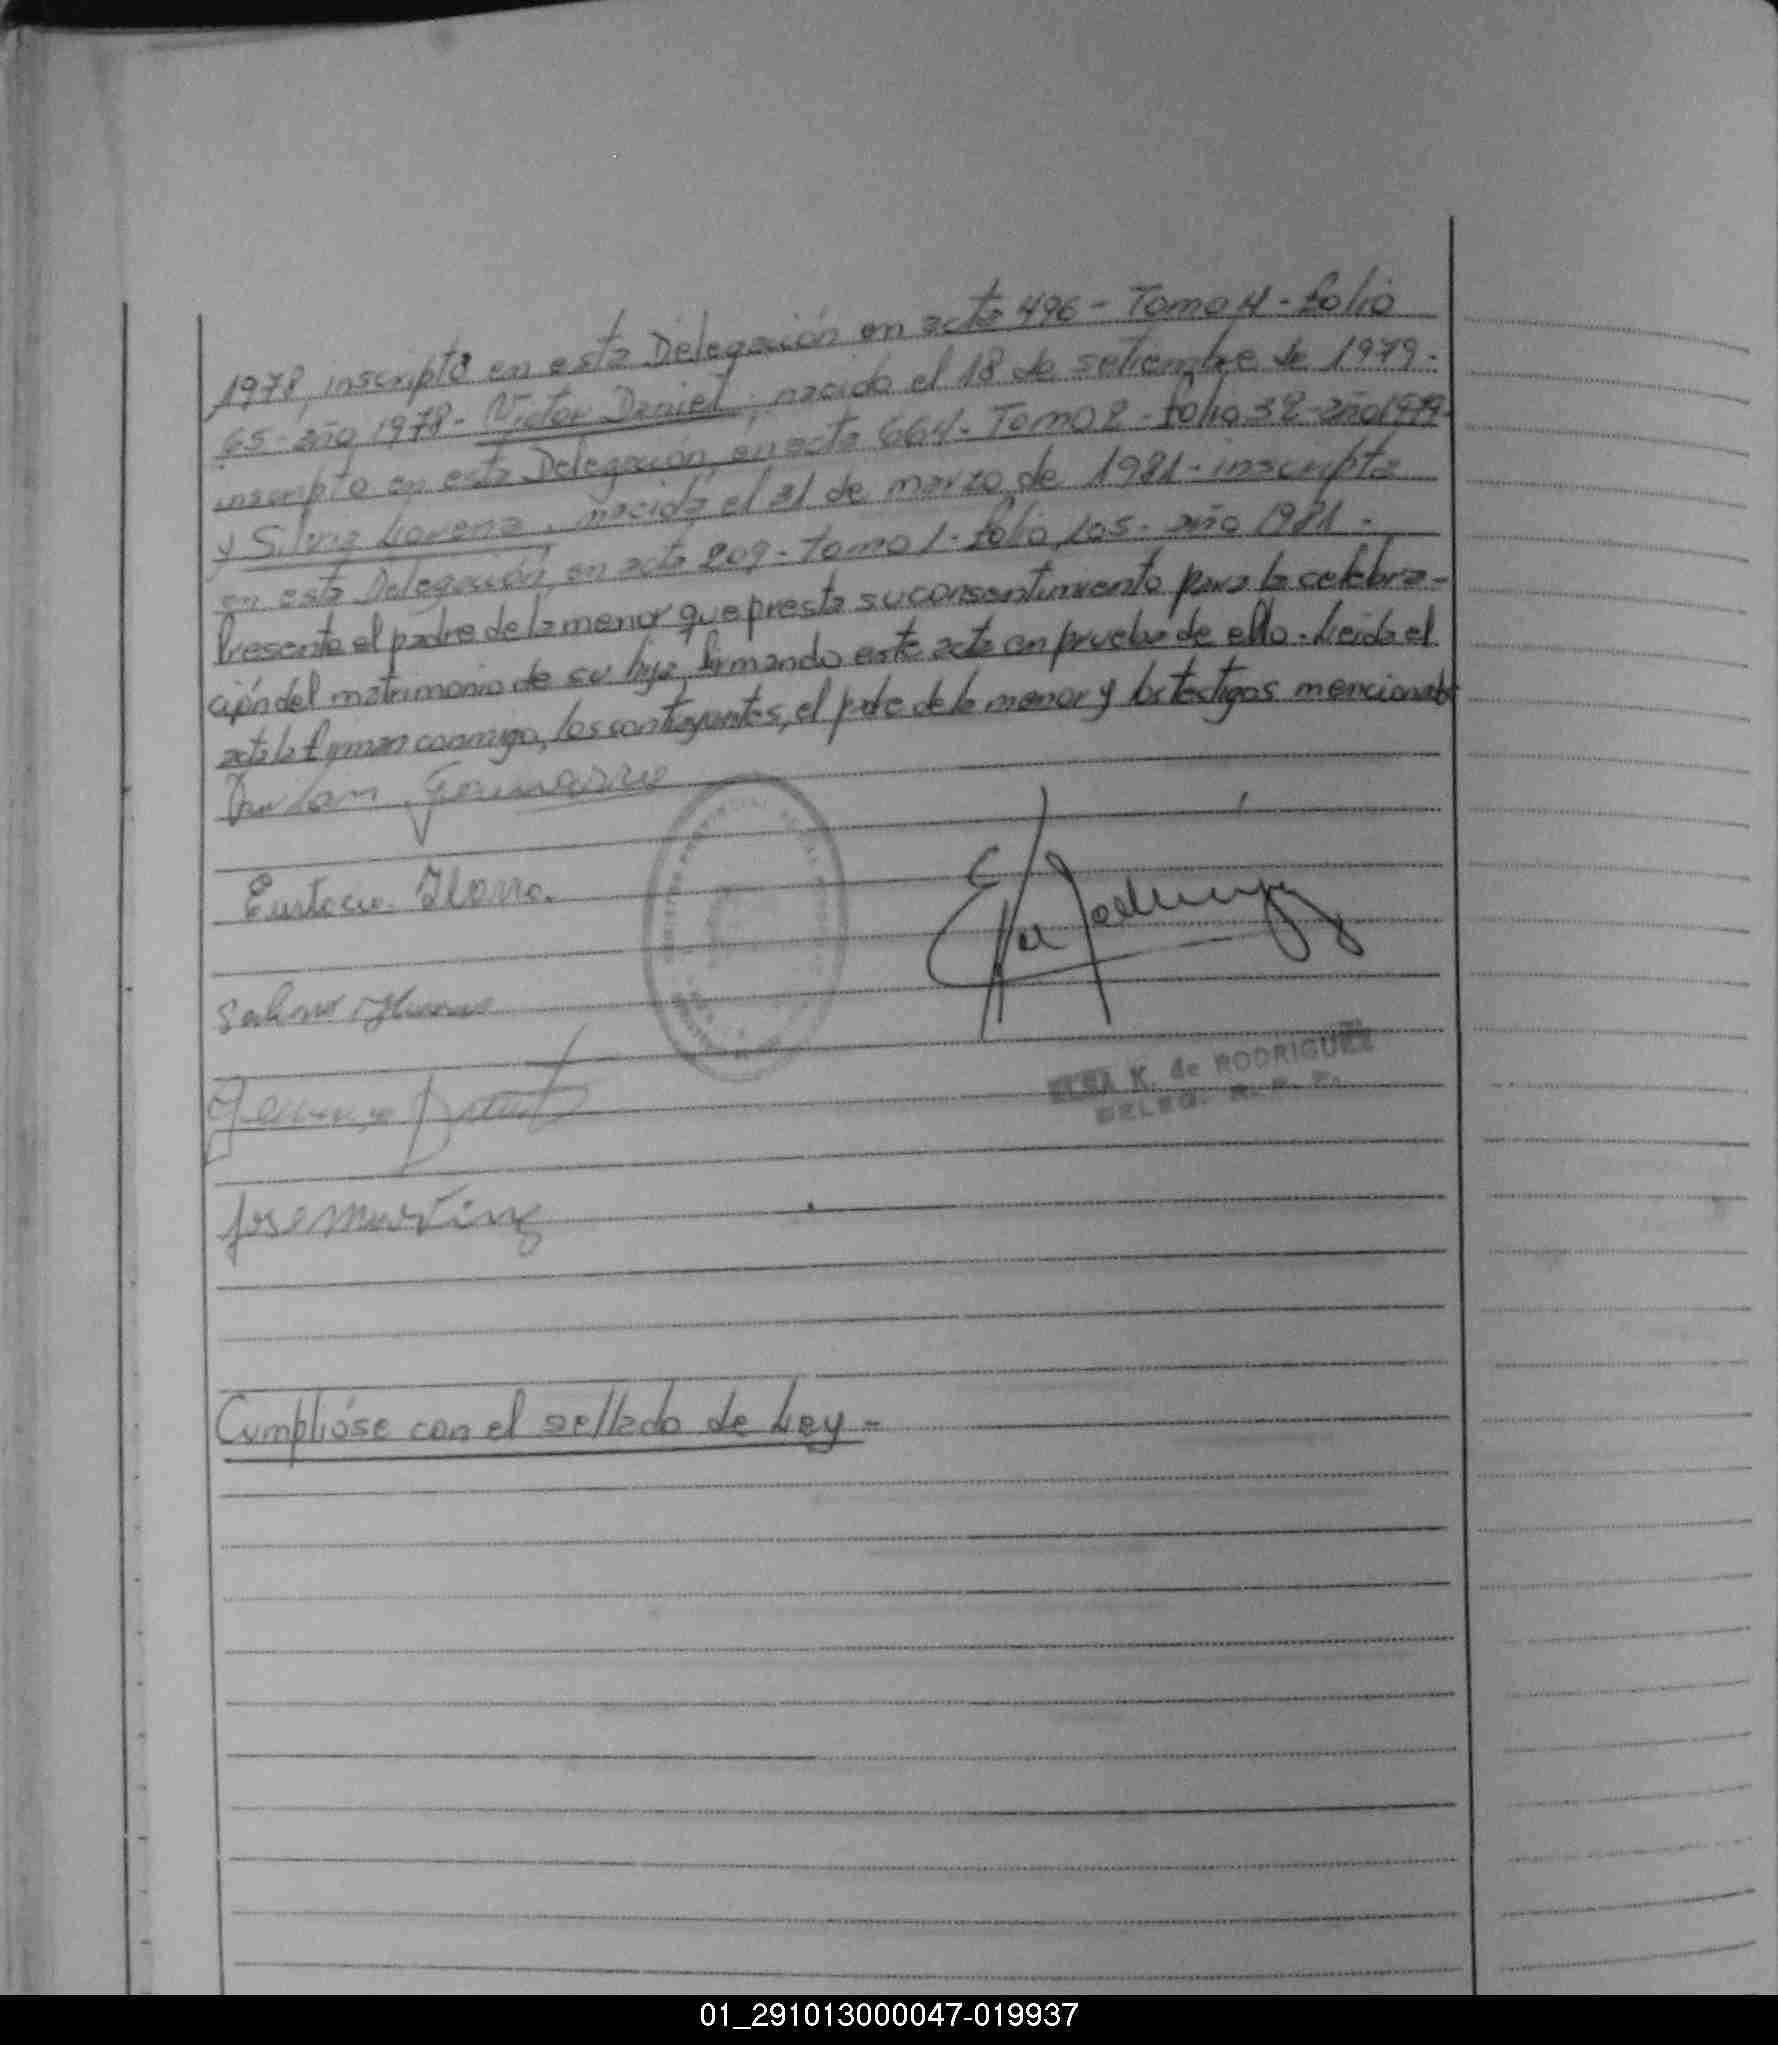 1978, inscripto en esta Delegación en acta 496 - Tomo 4 - folio
65 - año 1978 - Victor Daniel, nacido el 18 de setiembre de 1979 -
inscripto en esta Delegación, en acta 664 - Tomo 2 - folio 32 - año 1979
y Silvia Lorena, nacida el 31 de marzo de 1981 - inscripta
en esta Delegación, en acta 209 - tomo 1 - folio 105 - año 1981 -
Presente el padre de la menor que presta su consentimiento para la celebra-
ción del matrimonio de su hija, firmando este acta en prueba de ello - Leida el
acta la firman conmigo, los contrayentes, el padre de la menor y los testigos mencionados
Eustacio
Jose Martinez
ELSA K. de RODRIGUEZ
DELEG. R. P. P.
Cumplióse con el sellado de Ley -
01_291013000047-019937